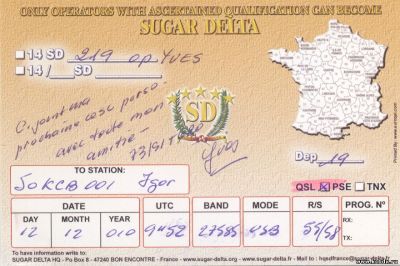 ONLY OPERATORS WITH ASCERTAINED QUALIFICATION CAN BECOME
SUGAR DELTA
14 SD 219 op YVES
14/ SD
C. joint ma
prochaine carte perso
avec toute mon
amitié -
73/51
Yves
SD
Dep 19
TO STATION:
QSL PSE TNX
Igor
DATE UTC BAND MODE R/S PROG. N°
DAY MONTH YEAR
12 12 010 9H52 27585 USB 55/58 RX:
TX:
To have information write to:
SUGAR DELTA HQ - Po Box 8 - 47240 BON ENCONTRE - France - www.sugar-delta.org - www.sugar-delta.fr - Mail to : hqsdfrance@sugar-delta.org